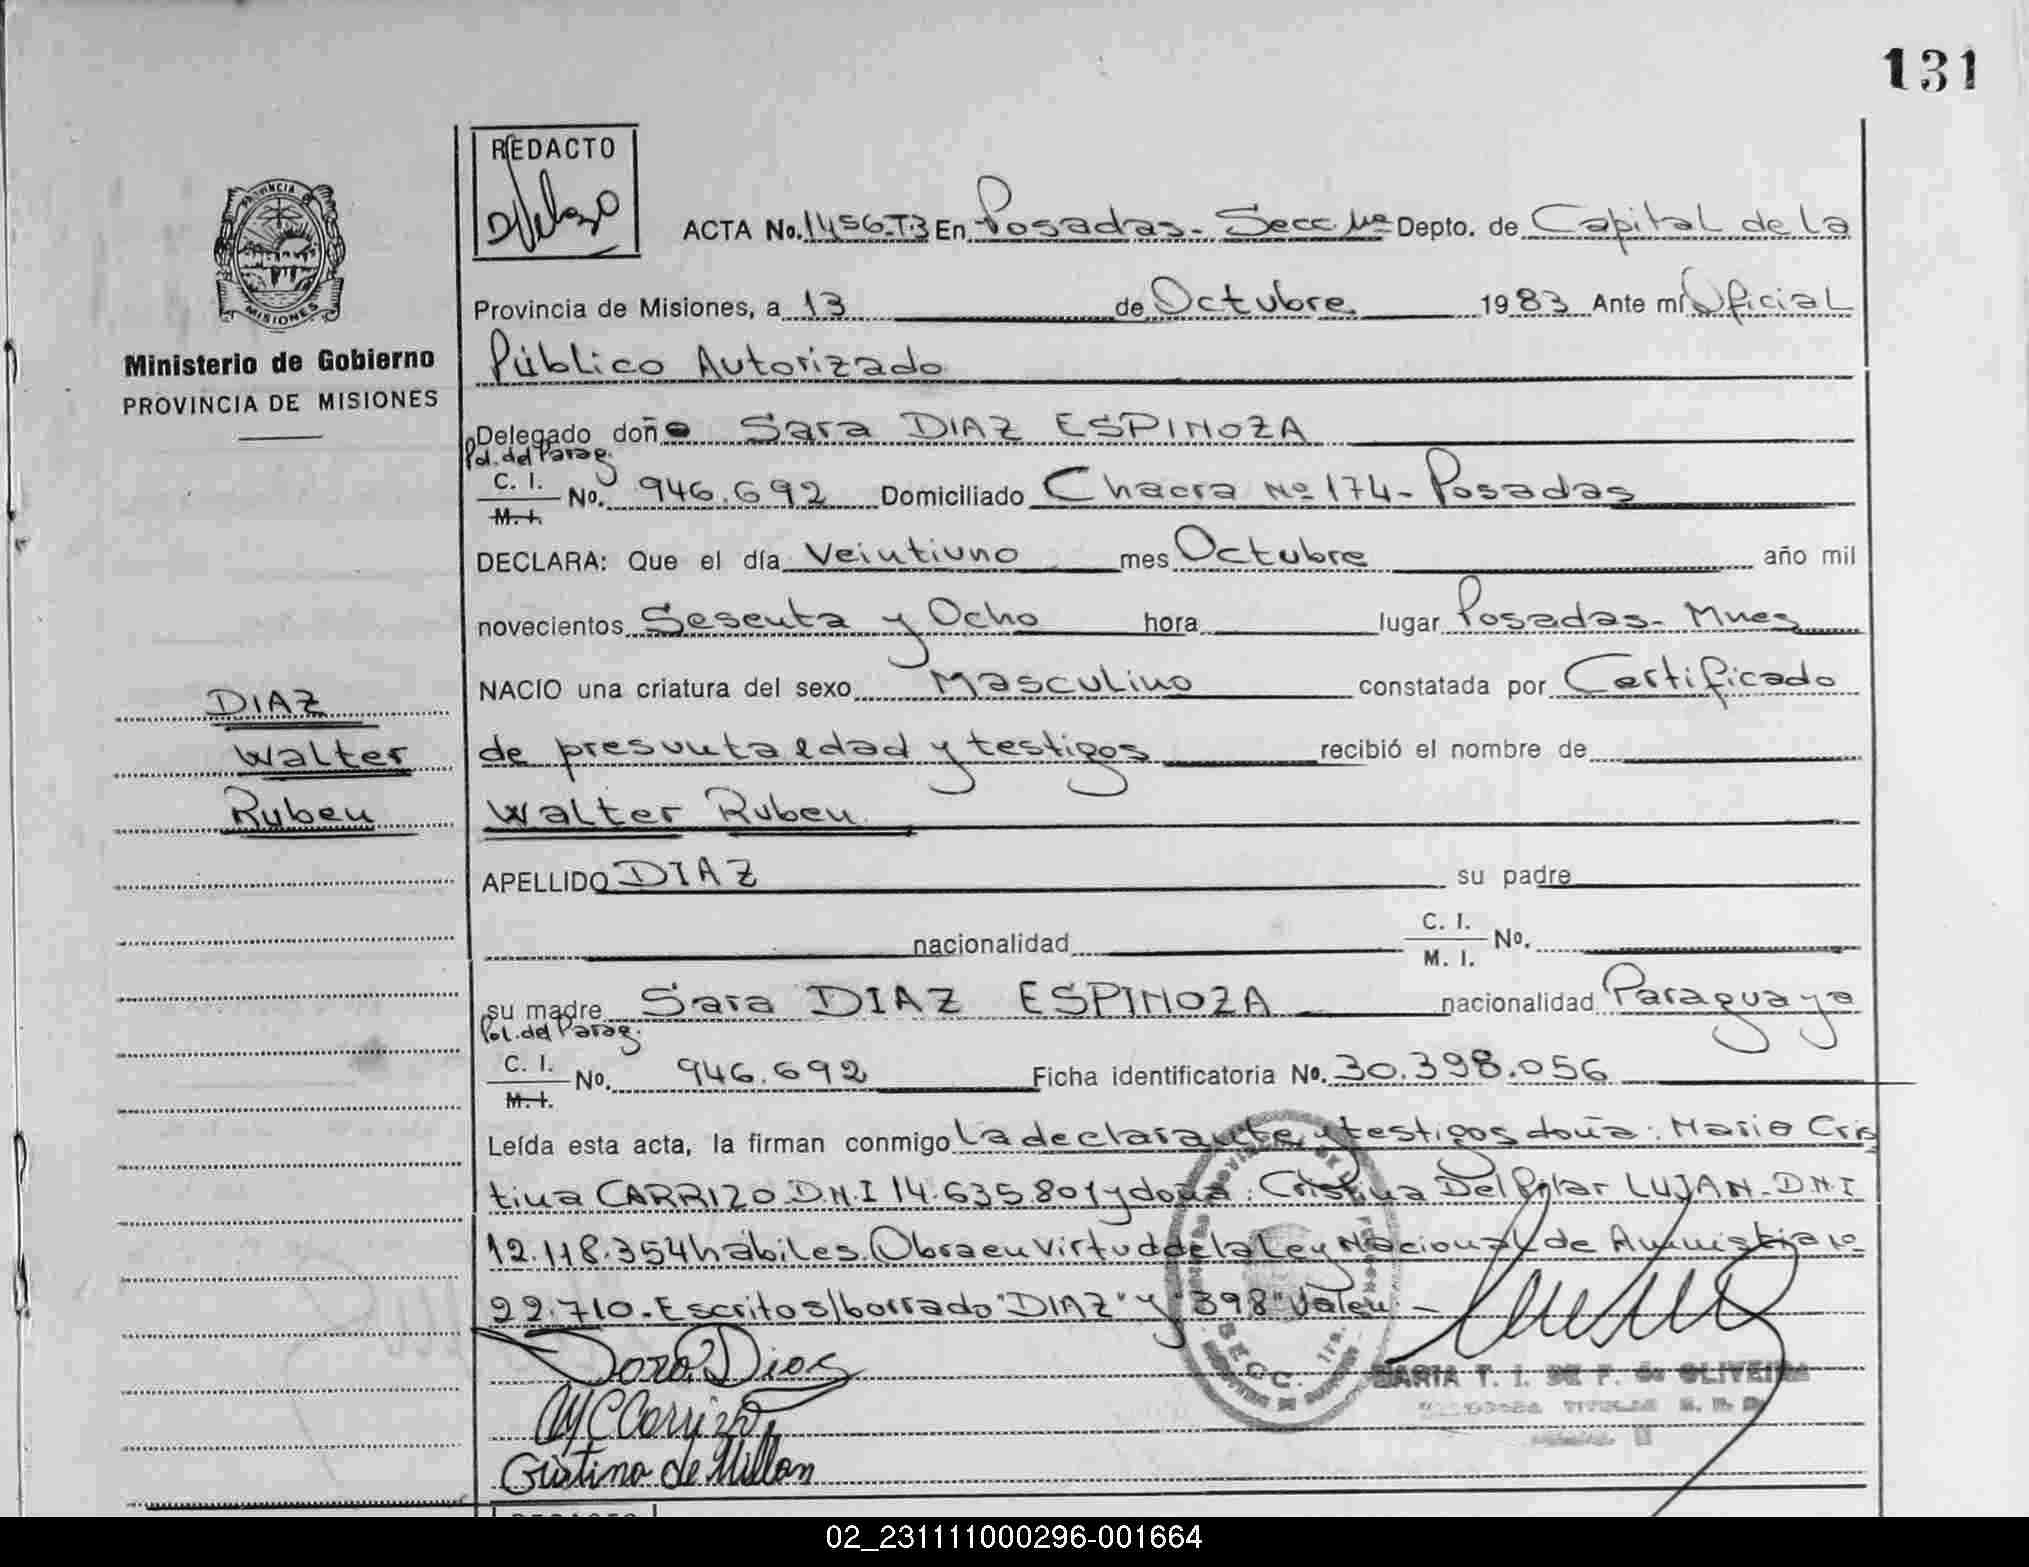 131
REDACTO
ACTA No. 1456-T.3 En Posadas.- Secc. 1ra Depto. de Capital de la
PROVINCIA DE
MISIONES
Provincia de Misiones, a 13 de Octubre 1983 Ante mí Oficial
Ministerio de Gobierno
PROVINCIA DE MISIONES
Público Autorizado
Delegado doña Sara DIAZ ESPINOZA
Pol. del Parag.
C. I. No. 946.692 Domiciliado Chacra Nº 174- Posadas
M. I.
DECLARA: Que el día Veintiuno mes Octubre año mil
novecientos Sesenta y Ocho hora lugar Posadas- Mnes
NACIO una criatura del sexo Masculino constatada por Certificado
DIAZ
Walter
Ruben
de presunta edad y testigos recibió el nombre de
Walter Ruben
APELLIDO DIAZ su padre
nacionalidad C. I. No.
M. I.
su madre Sara DIAZ ESPINOZA nacionalidad Paraguaya
Pol. del Parag.
C. I. No. 946.692 Ficha identificatoria No. 30.398.056
M. I.
Leída esta acta, la firman conmigo La declarante y testigos doña: Maria Cris
tina CARRIZO D.N.I 14.635.801 y doña: Cristina Del Pilar LUJAN- D.N.I
12.118.354 habiles. Obra en Virtud de la Ley Nacional de Amnistia Nº
22.710.- Escrito s/borrado "DIAZ" y "398" Valen.-
Sara Diaz
MARIA T. I. DE F. de OLIVEIRA
MCCarrizo
Cristina de Millan
SECC. 1ra.
02_231111000296-001664